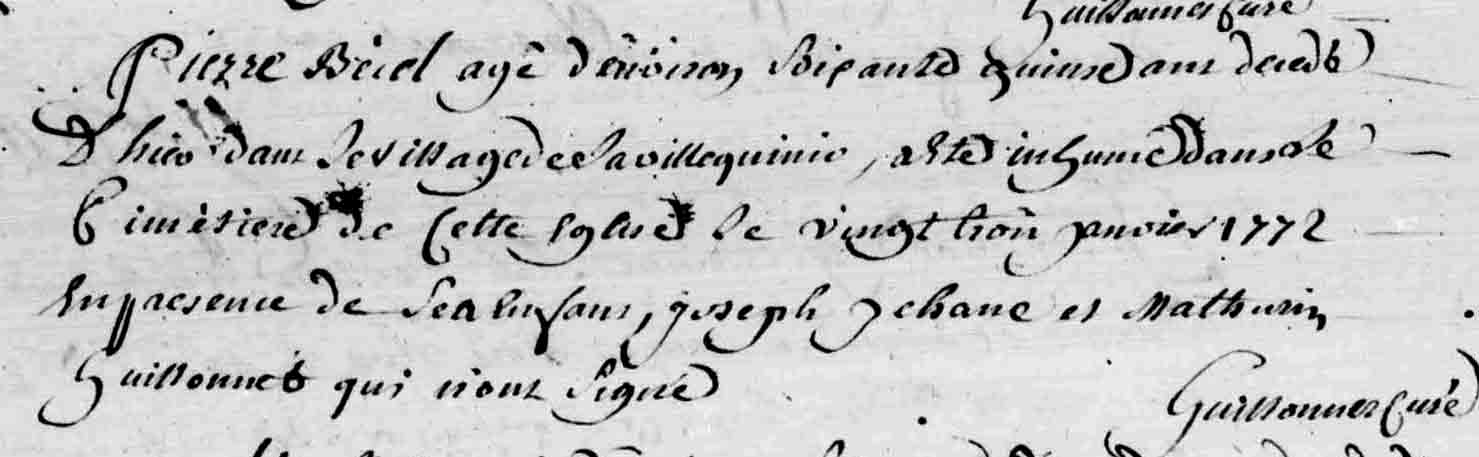 Guillounet curé
Pierre Beiel agé d'environ Soipante quinse ans decedé
D'hier dans le village de la villequinio, a eté inhumé dans le
Cimetiere de Cette Eglise le vingt trois janvier 1772
En presence de Ses Enfans, joseph jehane et Mathurin
Guillounet qui n'ont Signé
Guillounet Curé